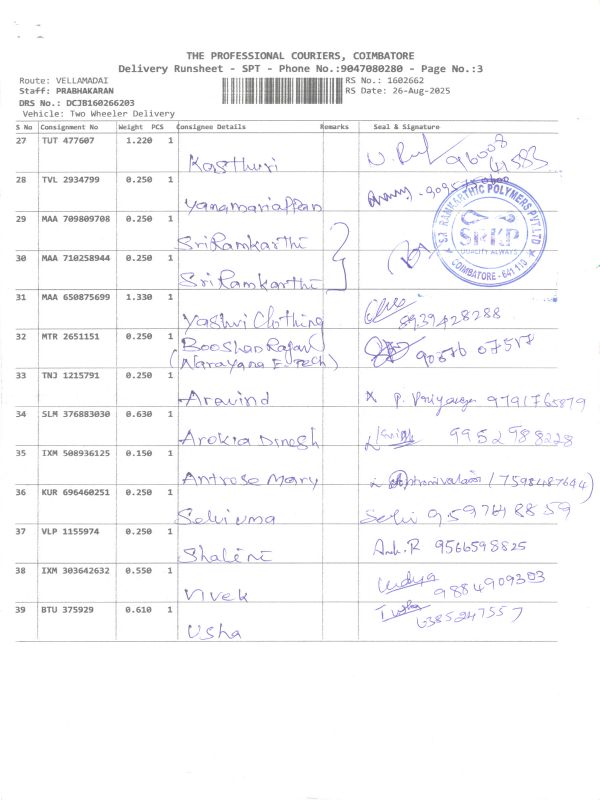 THE PROFESSIONAL COURIERS, COIMBATORE
Delivery Runsheet - SPT - Phone No.:9047080280 - Page No.:3
Route: VELLAMADAI RS No.: 1602662
Staff: PRABHAKARAN RS Date: 26-Aug-2025
DRS No.: DCJB160266203
Vehicle: Two Wheeler Delivery
S No Consignment No Weight PCS Consignee Details Remarks Seal & Signature
27 TUT 477607 1.220 1 Kasthuri 96008 41583
28 TVL 2934799 0.250 1 Yanamariappan
29 MAA 709809708 0.250 1 SriRamkarthi
30 MAA 710258944 0.250 1 SriRamkarthi
S.P. RAMKARTHIC POLYMERS PVT LTD
SRKP
QUALITY ALWAYS
COIMBATORE - 641 110
31 MAA 650875699 1.330 1 Yashvi Clothing 8939428288
32 MTR 2651151 0.250 1 Booshan Rajan 90876 07517
(Narayana E-Tech)
33 TNJ 1215791 0.250 1 Aravind 9791765879
34 SLM 376883030 0.630 1 Arokia Dinesh 9952988228
35 IXM 508936125 0.150 1 Antrose Mary (7598487644)
36 KUR 696460251 0.250 1 Selvi uma Selvi 9597648859
37 VLP 1155974 0.250 1 Shalini 9566598825
38 IXM 303642632 0.550 1 Vivek 9884909303
39 BTU 375929 0.610 1 Usha 6385247557